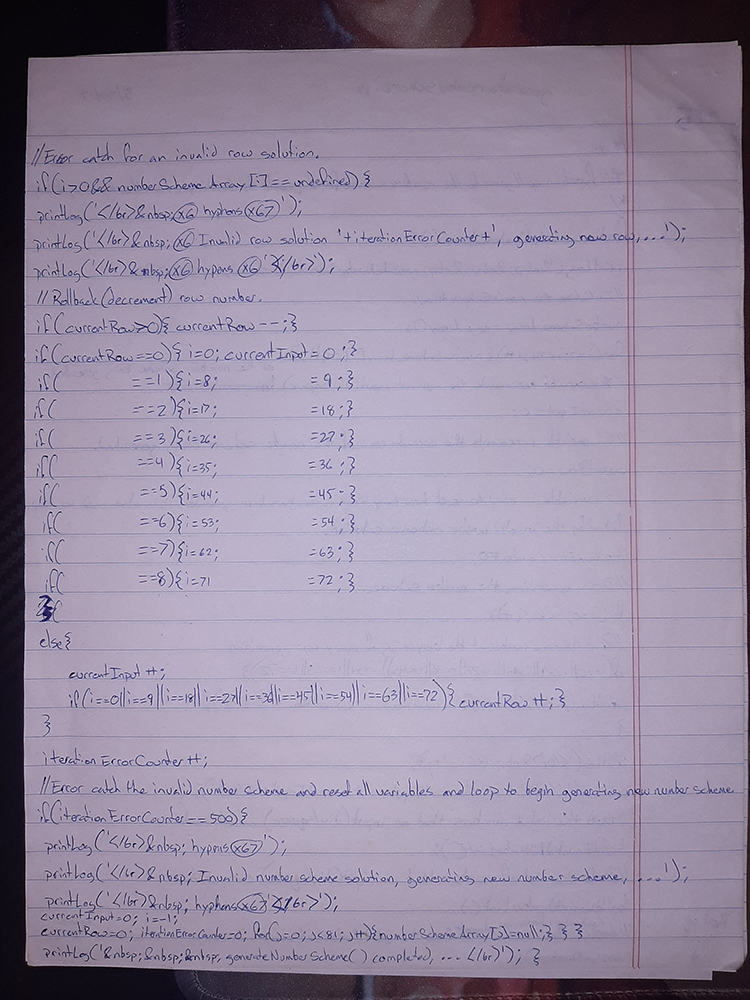 //Error catch for an invalid row solution.
if(i>0&& numberSchemeArray[i]==undefined){
printLog('</br>&nbsp;x6 hyphens x67');
printLog('</br>&nbsp;x6 Invalid row solution '+iterationErrorCounter+', generating new row,...');
printLog('</br>&nbsp;x6 hypens x6'</br>');
//Rollback(decrement) row number.
if(currentRow>0){ currentRow--;}
if(currentRow==0){i=0; currentInput=0;}
if( ==1){i=8; =9;}
if( ==2){i=17; =18;}
if( ==3){i=26; =27;}
if( ==4){i=35; =36;}
if( ==5){i=44; =45;}
if( ==6){i=53; =54;}
if( ==7){i=62; =63;}
if( ==8){i=71 =72;}
}
else{
currentInput++;
if(i==0||i==9||i==18||i==27||i==36||i==45||i==54||i==63||i==72){ currentRow++;}
}
iterationErrorCounter++;
//Error catch the invalid number scheme and reset all variables and loop to begin generating new number scheme
if(iterationErrorCounter==500){
printLog('</br>&nbsp; hypens x67');
printLog('</br>&nbsp; Invalid number scheme solution, generating new number scheme, ...');
printLog('</br>&nbsp; hyphens x67'</br>');
currentInput=0; i=-1;
currentRow=0; iterationErrorCounter=0; for(j=0; j<81; j++){numberSchemeArray[j]=null;} } }
printLog('&nbsp;&nbsp;&nbsp; generateNumberScheme() completed, ... </br>'); }